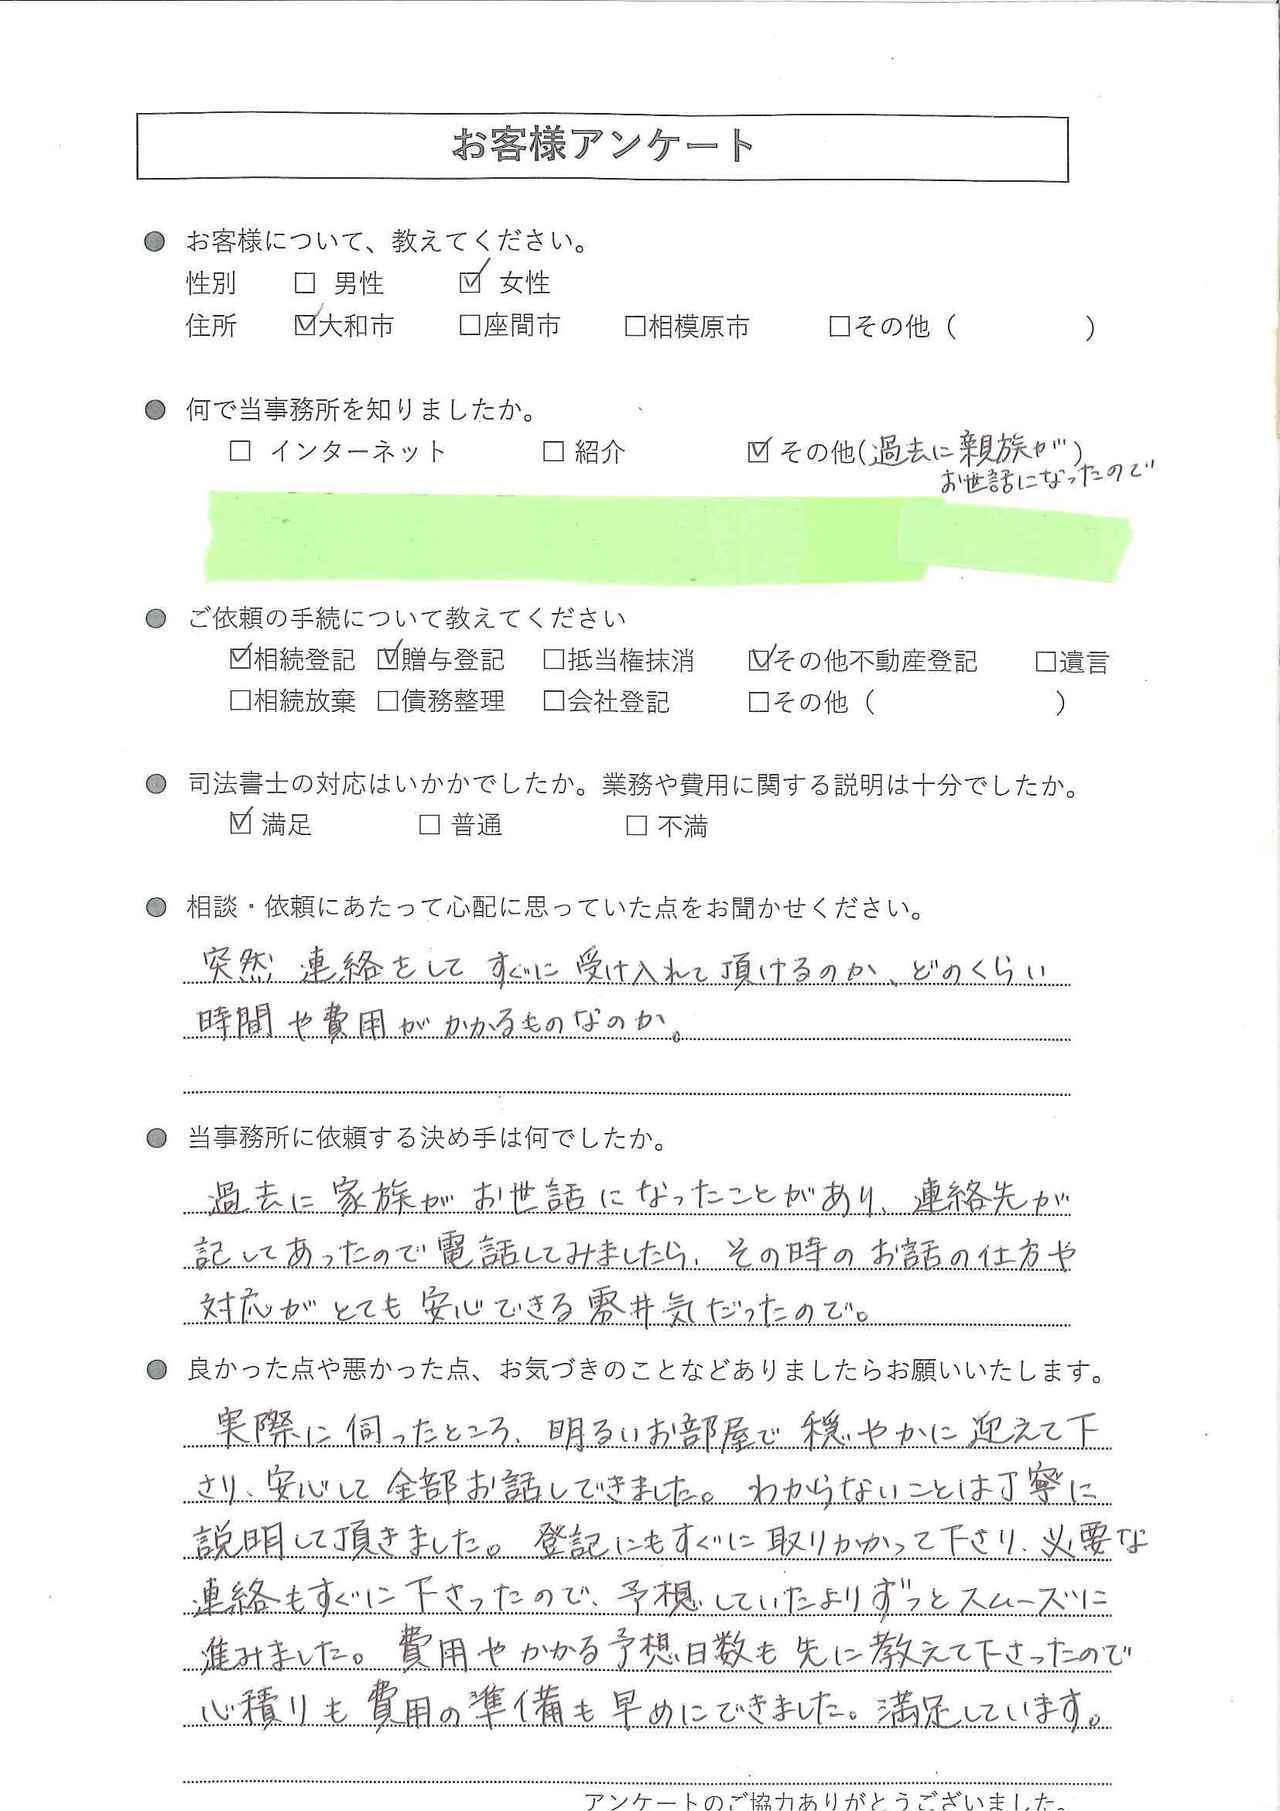 お客様アンケート
● お客様について、教えてください。
性別 □ 男性 ☑ 女性
住所 ☑大和市 □座間市 □相模原市 □その他（ ）
● 何で当事務所を知りましたか。
□ インターネット □ 紹介 ☑ その他(過去に親族が)
お世話になったので
● ご依頼の手続について教えてください
☑相続登記 ☑贈与登記 □抵当権抹消 ☑その他不動産登記 □遺言
□相続放棄 □債務整理 □会社登記 □その他（ ）
● 司法書士の対応はいかかでしたか。業務や費用に関する説明は十分でしたか。
☑ 満足 □ 普通 □ 不満
● 相談・依頼にあたって心配に思っていた点をお聞かせください。
突然 連絡をして すぐに 受け入れて 頂けるのか、どのくらい
時間や費用がかかるものなのか。
● 当事務所に依頼する決め手は何でしたか。
過去に 家族が お世話 になったことがあり、連絡先が
記してあったので電話してみましたら、その時のお話の仕方や
対応が とても 安心できる 雰囲気だったので。
● 良かった点や悪かった点、お気づきのことなどありましたらお願いいたします。
実際に伺ったところ、明るいお部屋で 穏やかに 迎えて下
さり、安心して 全部お話しできました。わからないことは丁寧に
説明して頂きました。登記にもすぐに取りかかって下さり、必要な
連絡もすぐに下さったので、予想していたよりずっとスムーズに
進みました。費用やかかる予想日数も先に教えて下さったので
心積りも費用の準備も早めにできました。満足しています。
アンケートのご協力ありがとうございました。